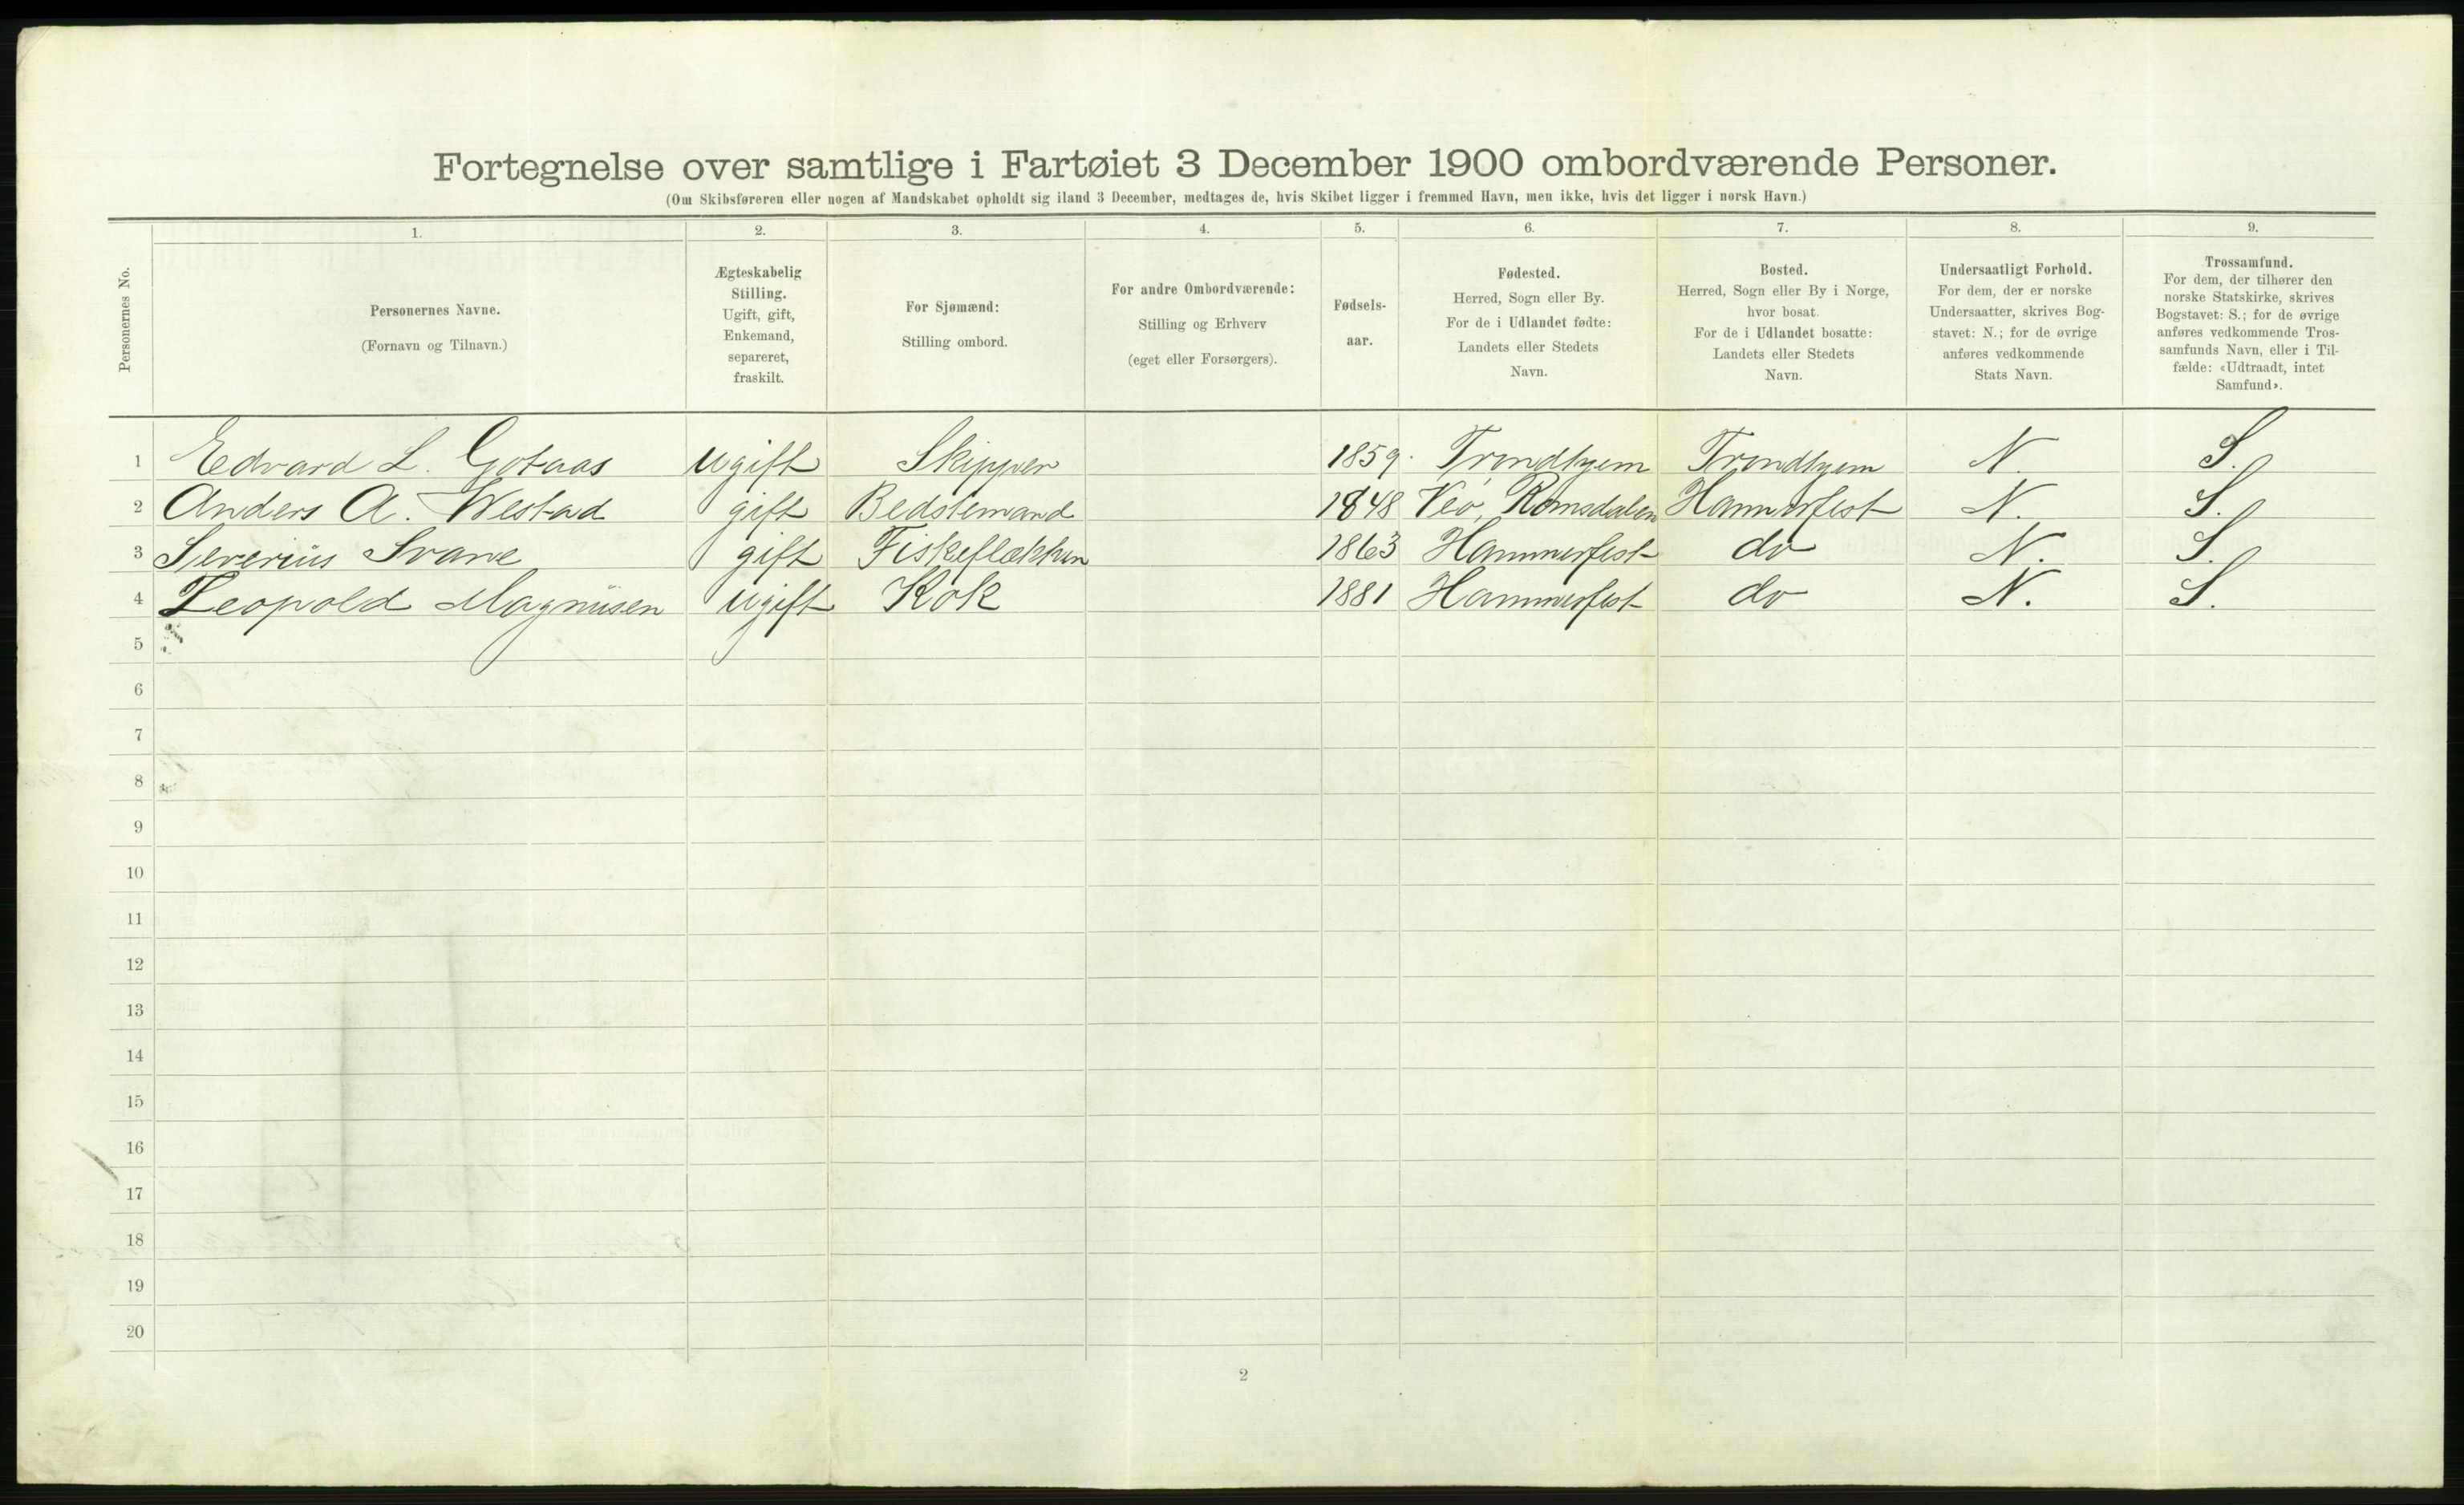 Fortegnelse over samtlige i Fartøiet 3 December 1900 ombordværende Personer.
(Om Skibsføreren eller nogen af Mandskabet opholdt sig iland 3 December, medtages de, hvis Skibet ligger i fremmed Havn, men ikke, hvis det ligger i norsk Havn.)
Personernes No.
1. 2. 3. 4. 5. 6. 7. 8. 9.
Personernes Navne.
(Fornavn og Tilnavn.)
Ægteskabelig
Stilling.
Ugift, gift,
Enkemand,
separeret,
fraskilt.
For Sjømænd:
Stilling ombord.
For andre Ombordværende:
Stilling og Erhverv
(eget eller Forsørgers).
Fødsels-
aar.
Fødested.
Herred, Sogn eller By.
For de i Udlandet fødte:
Landets eller Stedets
Navn.
Bosted.
Herred, Sogn eller By i Norge,
hvor bosat.
For de i Udlandet bosatte:
Landets eller Stedets
Navn.
Undersaatligt Forhold.
For dem, der er norske
Undersaatter, skrives Bog-
stavet: N.; for de øvrige
anføres vedkommende
Stats Navn.
Trossamfund.
For dem, der tilhører den
norske Statskirke, skrives
Bogstavet: S.; for de øvrige
anføres vedkommende Tros-
samfunds Navn, eller i Til-
fælde: «Udtraadt, intet
Samfund».
1 Edvard L. Gotaas ugift Skipper 1859. Trondhjem Trondhjem N. S.
2 Anders A. Westad gift Bedstemand 1848 Veø, Romsdalen Hammerfest N. S.
3 Severius Svane gift 1863 Hammerfest do N. S.
4 Leopold Magnüsen ugift Kok 1881 Hammerfest do N. S.
5
6
7
8
9
10
11
12
13
14
15
16
17
18
19
20
2